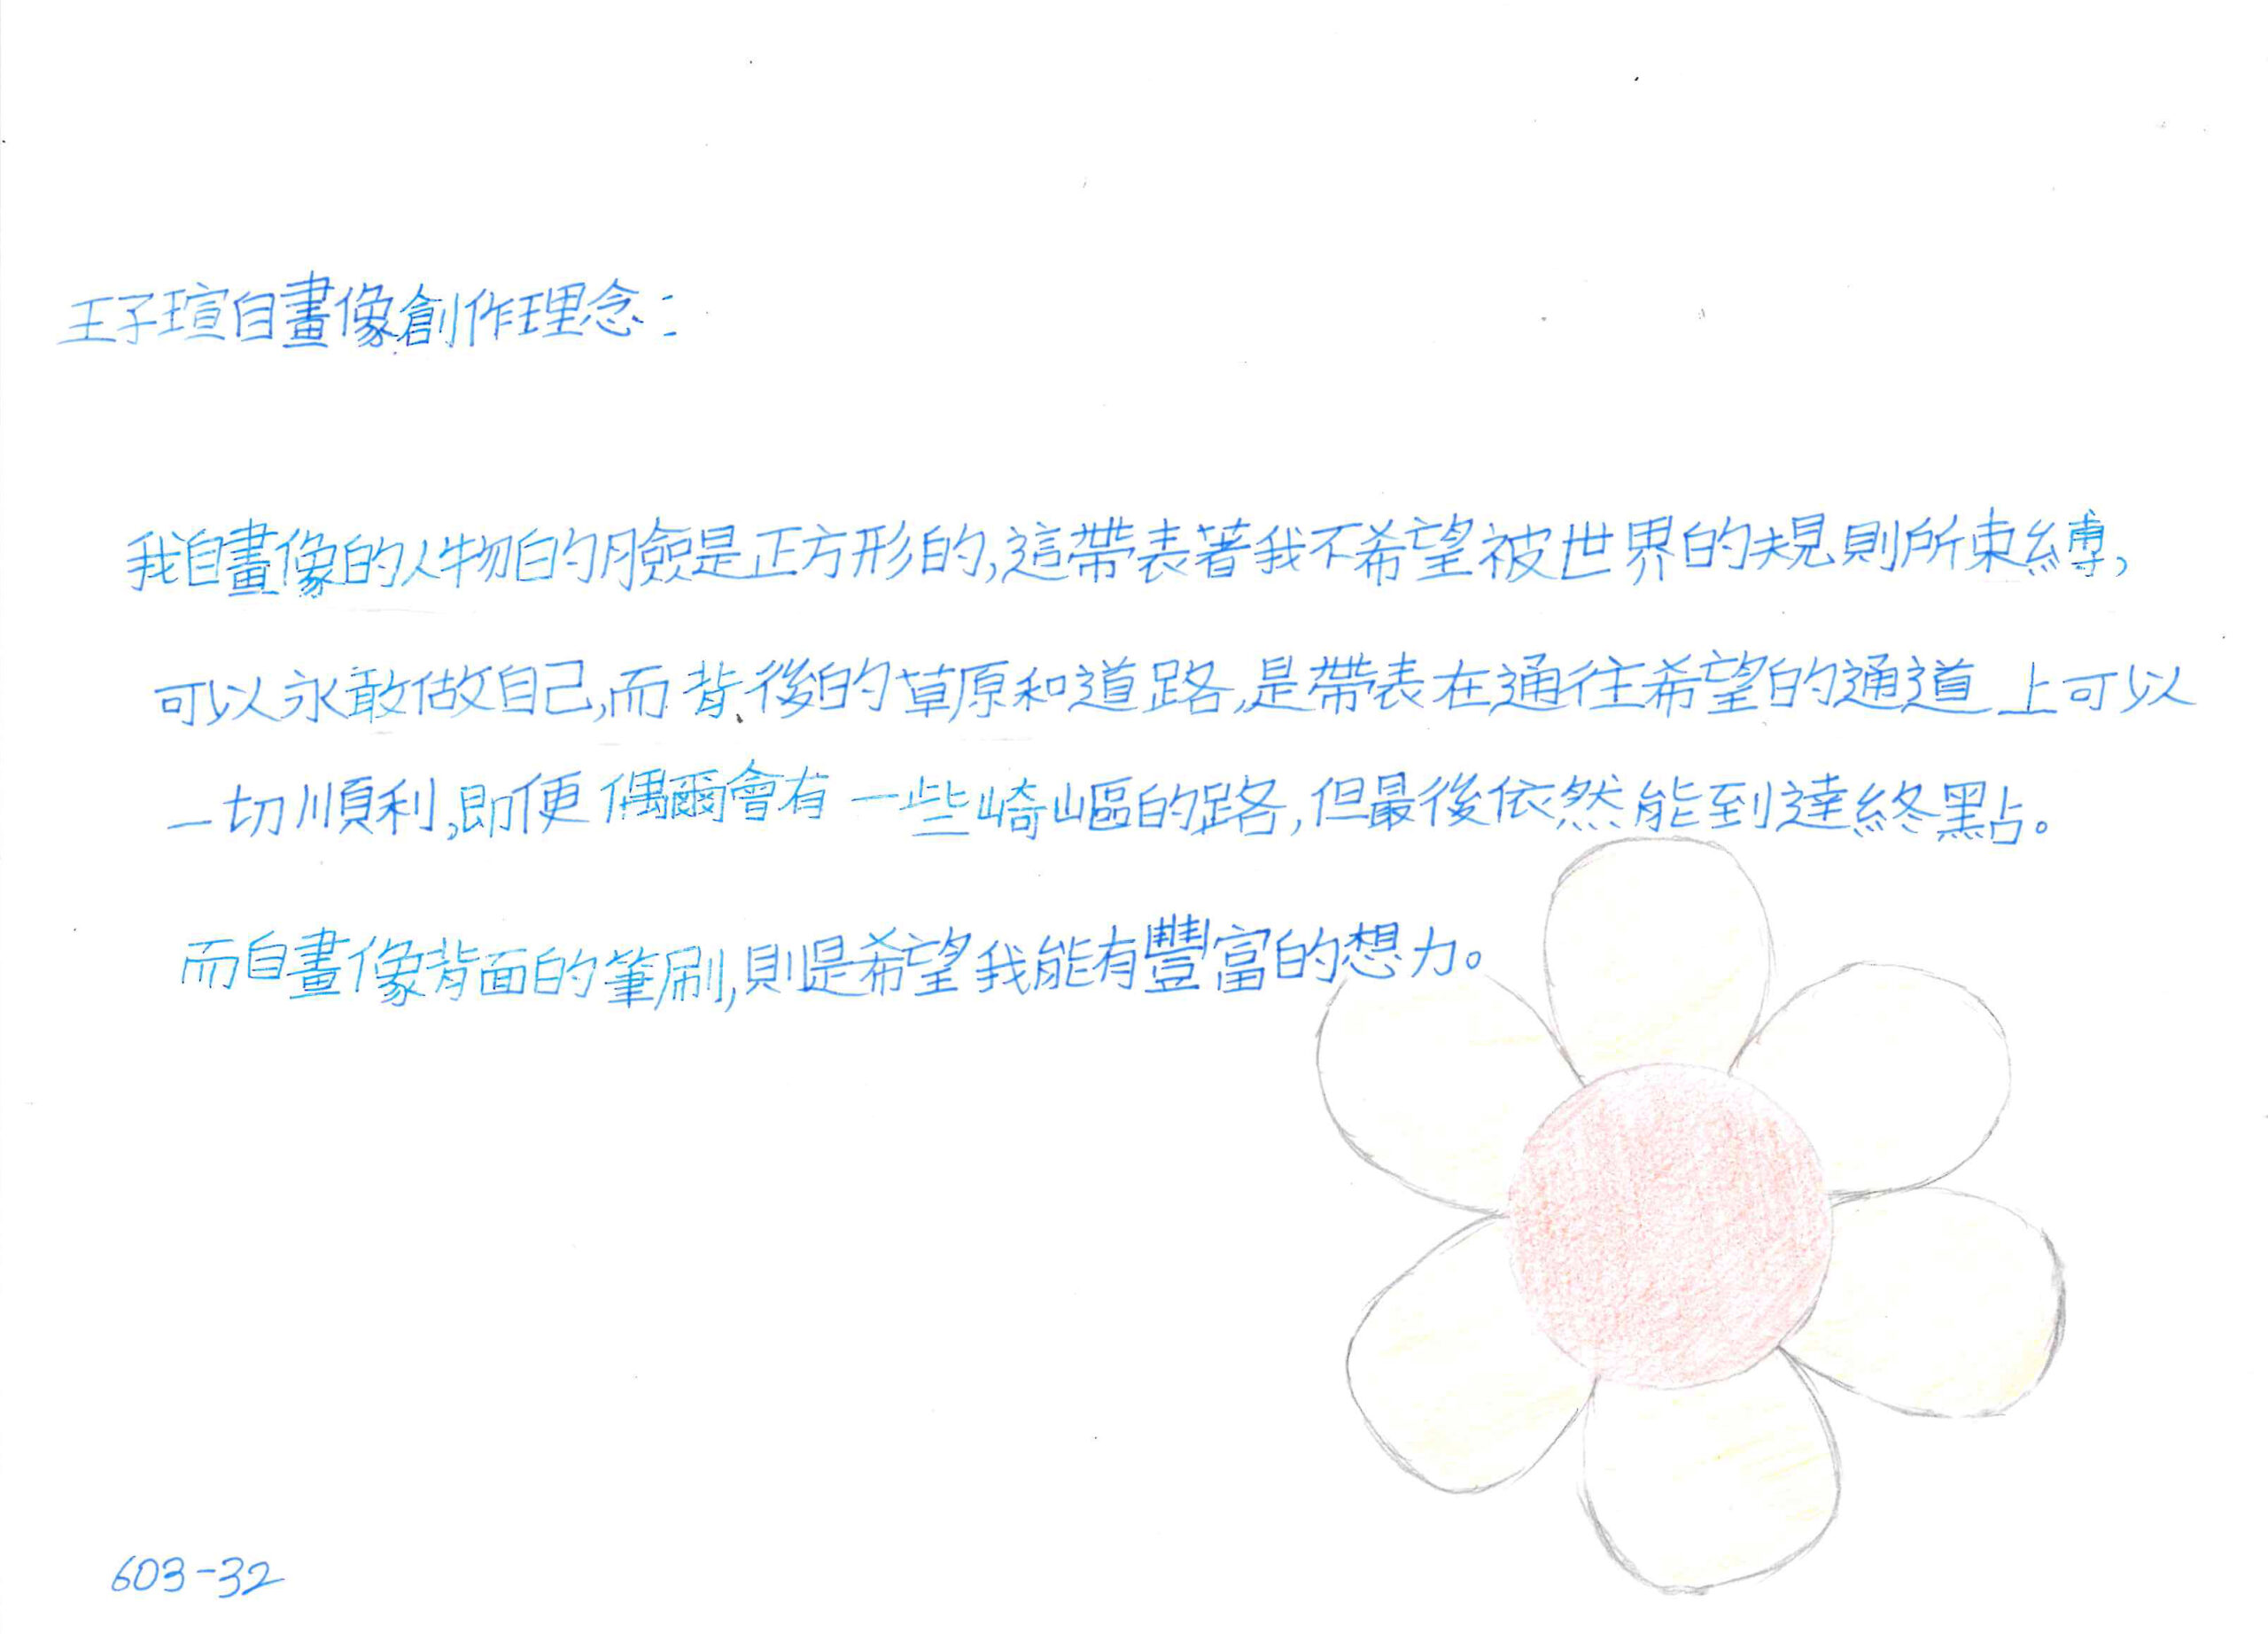 王子瑄自畫像創作理念：
我自畫像的人物的臉是正方形的,這帶表著我不希望被世界的規則所束縛,
可以永敢做自己,而背後的草原和道路,是帶表在通往希望的通道上可以
一切順利,即便偶爾會有一些崎嶇的路,但最後依然能到達終點。
而自畫像背面的筆刷,則是希望我能有豐富的想力。
603-32